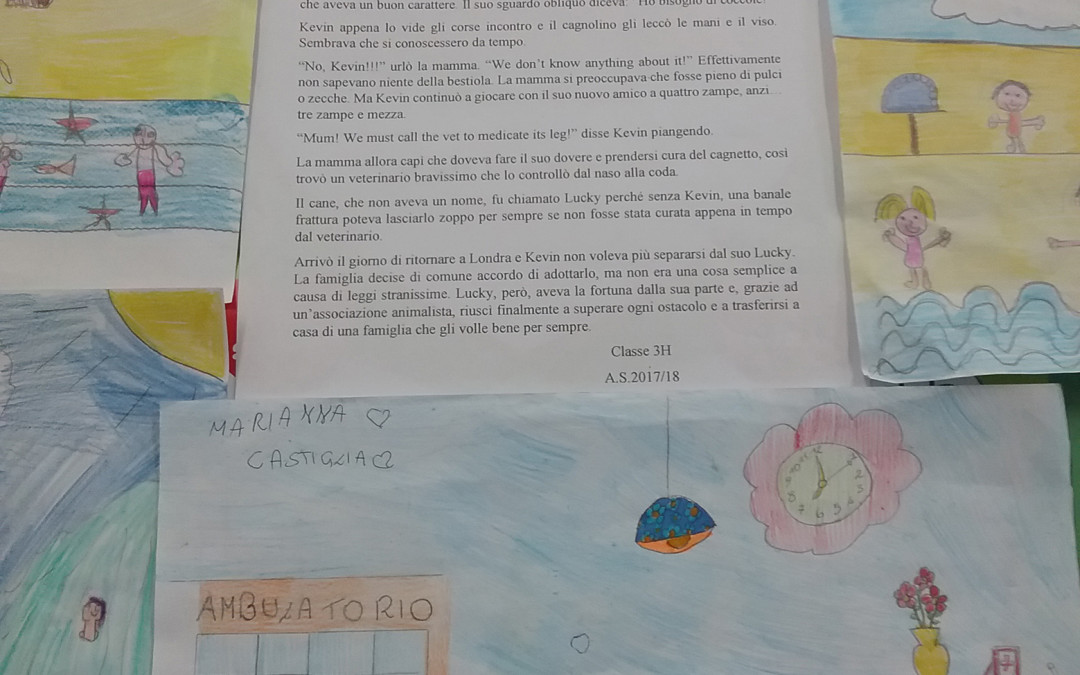 che aveva un buon carattere. Il suo sguardo obliquo diceva: "Ho bisogno di coccole."
Kevin appena lo vide gli corse incontro e il cagnolino gli leccò le mani e il viso.
Sembrava che si conoscessero da tempo.
“No, Kevin!!!” urlò la mamma. “We don’t know anything about it!” Effettivamente
non sapevano niente della bestiola. La mamma si preoccupava che fosse pieno di pulci
o zecche. Ma Kevin continuò a giocare con il suo nuovo amico a quattro zampe, anzi...
tre zampe e mezza.
“Mum! We must call the vet to medicate its leg!” disse Kevin piangendo.
La mamma allora capì che doveva fare il suo dovere e prendersi cura del cagnetto, così
trovò un veterinario bravissimo che lo controllò dal naso alla coda.
Il cane, che non aveva un nome, fu chiamato Lucky perché senza Kevin, una banale
frattura poteva lasciarlo zoppo per sempre se non fosse stata curata appena in tempo
dal veterinario.
Arrivò il giorno di ritornare a Londra e Kevin non voleva più separarsi dal suo Lucky.
La famiglia decise di comune accordo di adottarlo, ma non era una cosa semplice a
causa di leggi stranissime. Lucky, però, aveva la fortuna dalla sua parte e, grazie ad
un’associazione animalista, riuscì finalmente a superare ogni ostacolo e a trasferirsi a
casa di una famiglia che gli volle bene per sempre.
Classe 3H
A.S.2017/18
MARIANNA
CASTIGLIA
AMBULATORIO